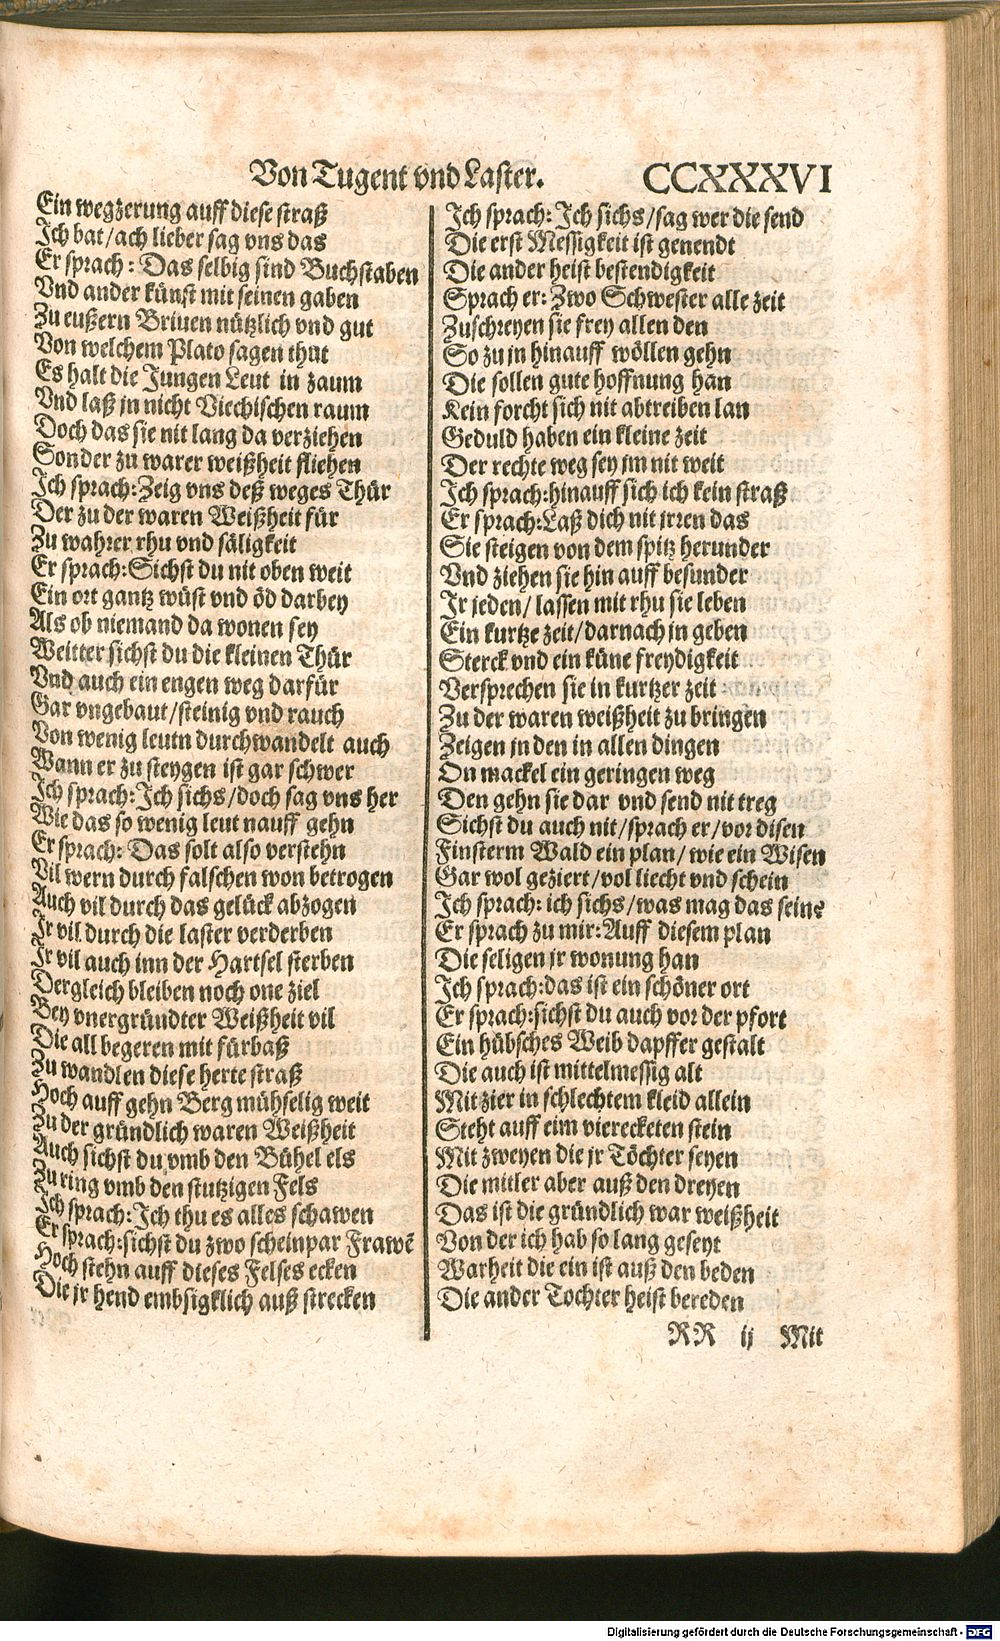 Von Tugent vnd Laster. CCXXXVI
Ein wegzerung auff diese straß
Ich bat/ach lieber sag vns das
Er sprach: Das selbig sind Buchstaben
Vnd ander künst mit seinen gaben
Zu eußern Briuen nützlich vnd gut
Von welchem Plato sagen thut
Es halt die Jungen Leut in zaum
Vnd laß jn nicht Viechischen raum
Doch das sie nit lang da verziehen
Sonder zu warer weißheit fliehen
Ich sprach: Zeig vns deß weges Thür
Der zu der waren Weißheit für
Zu wahrer rhu vnd säligkeit
Er sprach: Sichst du nit oben weit
Ein ort gantz wüst vnd öd darbey
Als ob niemand da wonen sey
Weitter sichst du die kleinen Thür
Vnd auch ein engen weg darfür
Gar vngebaut/steinig vnd rauch
Von wenig leutn durchwandelt auch
Wann er zu steygen ist gar schwer
Ich sprach: Ich sichs/doch sag vns her
Wie das so wenig leut nauff gehn
Er sprach: Das solt also verstehn
Vil wern durch falschen won betrogen
Auch vil durch das gelück abzogen
Jr vil durch die laster verderben
Jr vil auch inn der Hartsel sterben
Dergleich bleiben noch one ziel
Bey vnergründter Weißheit vil
Die all begeren mit fürbaß
Zu wandlen diese herte straß
Hoch auff gehn Berg mühselig weit
Zu der gründlich waren Weißheit
Auch sichst du vmb den Bühel els
Zu ring vmb den stutzigen Fels
Ich sprach: Ich thu es alles schawen
Er sprach: sichst du zwo scheinpar Frawē
Hoch stehn auff dieses Felses ecken
Die jr hend embsigklich auß strecken
Ich sprach: Ich sichs/sag wer die send
Die erst Messigkeit ist genendt
Die ander heist bestendigkeit
Sprach er: Zwo Schwester alle zeit
Zuschreyen sie frey allen den
So zu jn hinauff wöllen gehn
Die sollen gute hoffnung han
Kein forcht sich nit abtreiben lan
Geduld haben ein kleine zeit
Der rechte weg sey jm nit weit
Ich sprach: hinauff sich ich kein straß
Er sprach: Laß dich nit jrren das
Sie steigen von dem spitz herunder
Vnd ziehen sie hin auff besunder
Jr jeden/ lassen mit rhu sie leben
Ein kurtze zeit/darnach jn geben
Sterck vnd ein küne freydigkeit
Versprechen sie in kurtzer zeit
Zu der waren weißheit zu bringen
Zeigen jn den in allen dingen
On mackel ein geringen weg
Den gehn sie dar vnd send nit treg
Sichst du auch nit/sprach er/vor disen
Finsterm Wald ein plan/ wie ein Wisen
Gar wol geziert/vol liecht vnd schein
Ich sprach: ich sichs/was mag das sein?
Er sprach zu mir: Auff diesem plan
Die seligen jr wonung han
Ich sprach: das ist ein schöner ort
Er sprach: sichst du auch vor der pfort
Ein hübsches Weib dapffer gestalt
Die auch ist mittelmessig alt
Mit zier in schlechtem kleid allein
Steht auff eim vierecketen stein
Mit zweyen die jr Töchter seyen
Die mitler aber auß den dreyen
Das ist die gründlich war weißheit
Von der ich hab so lang geseyt
Warheit die ein ist auß den beden
Die ander Tochter heist bereden
RR ij Mit
Digitalisierung gefördert durch die Deutsche Forschungsgemeinschaft - DFG